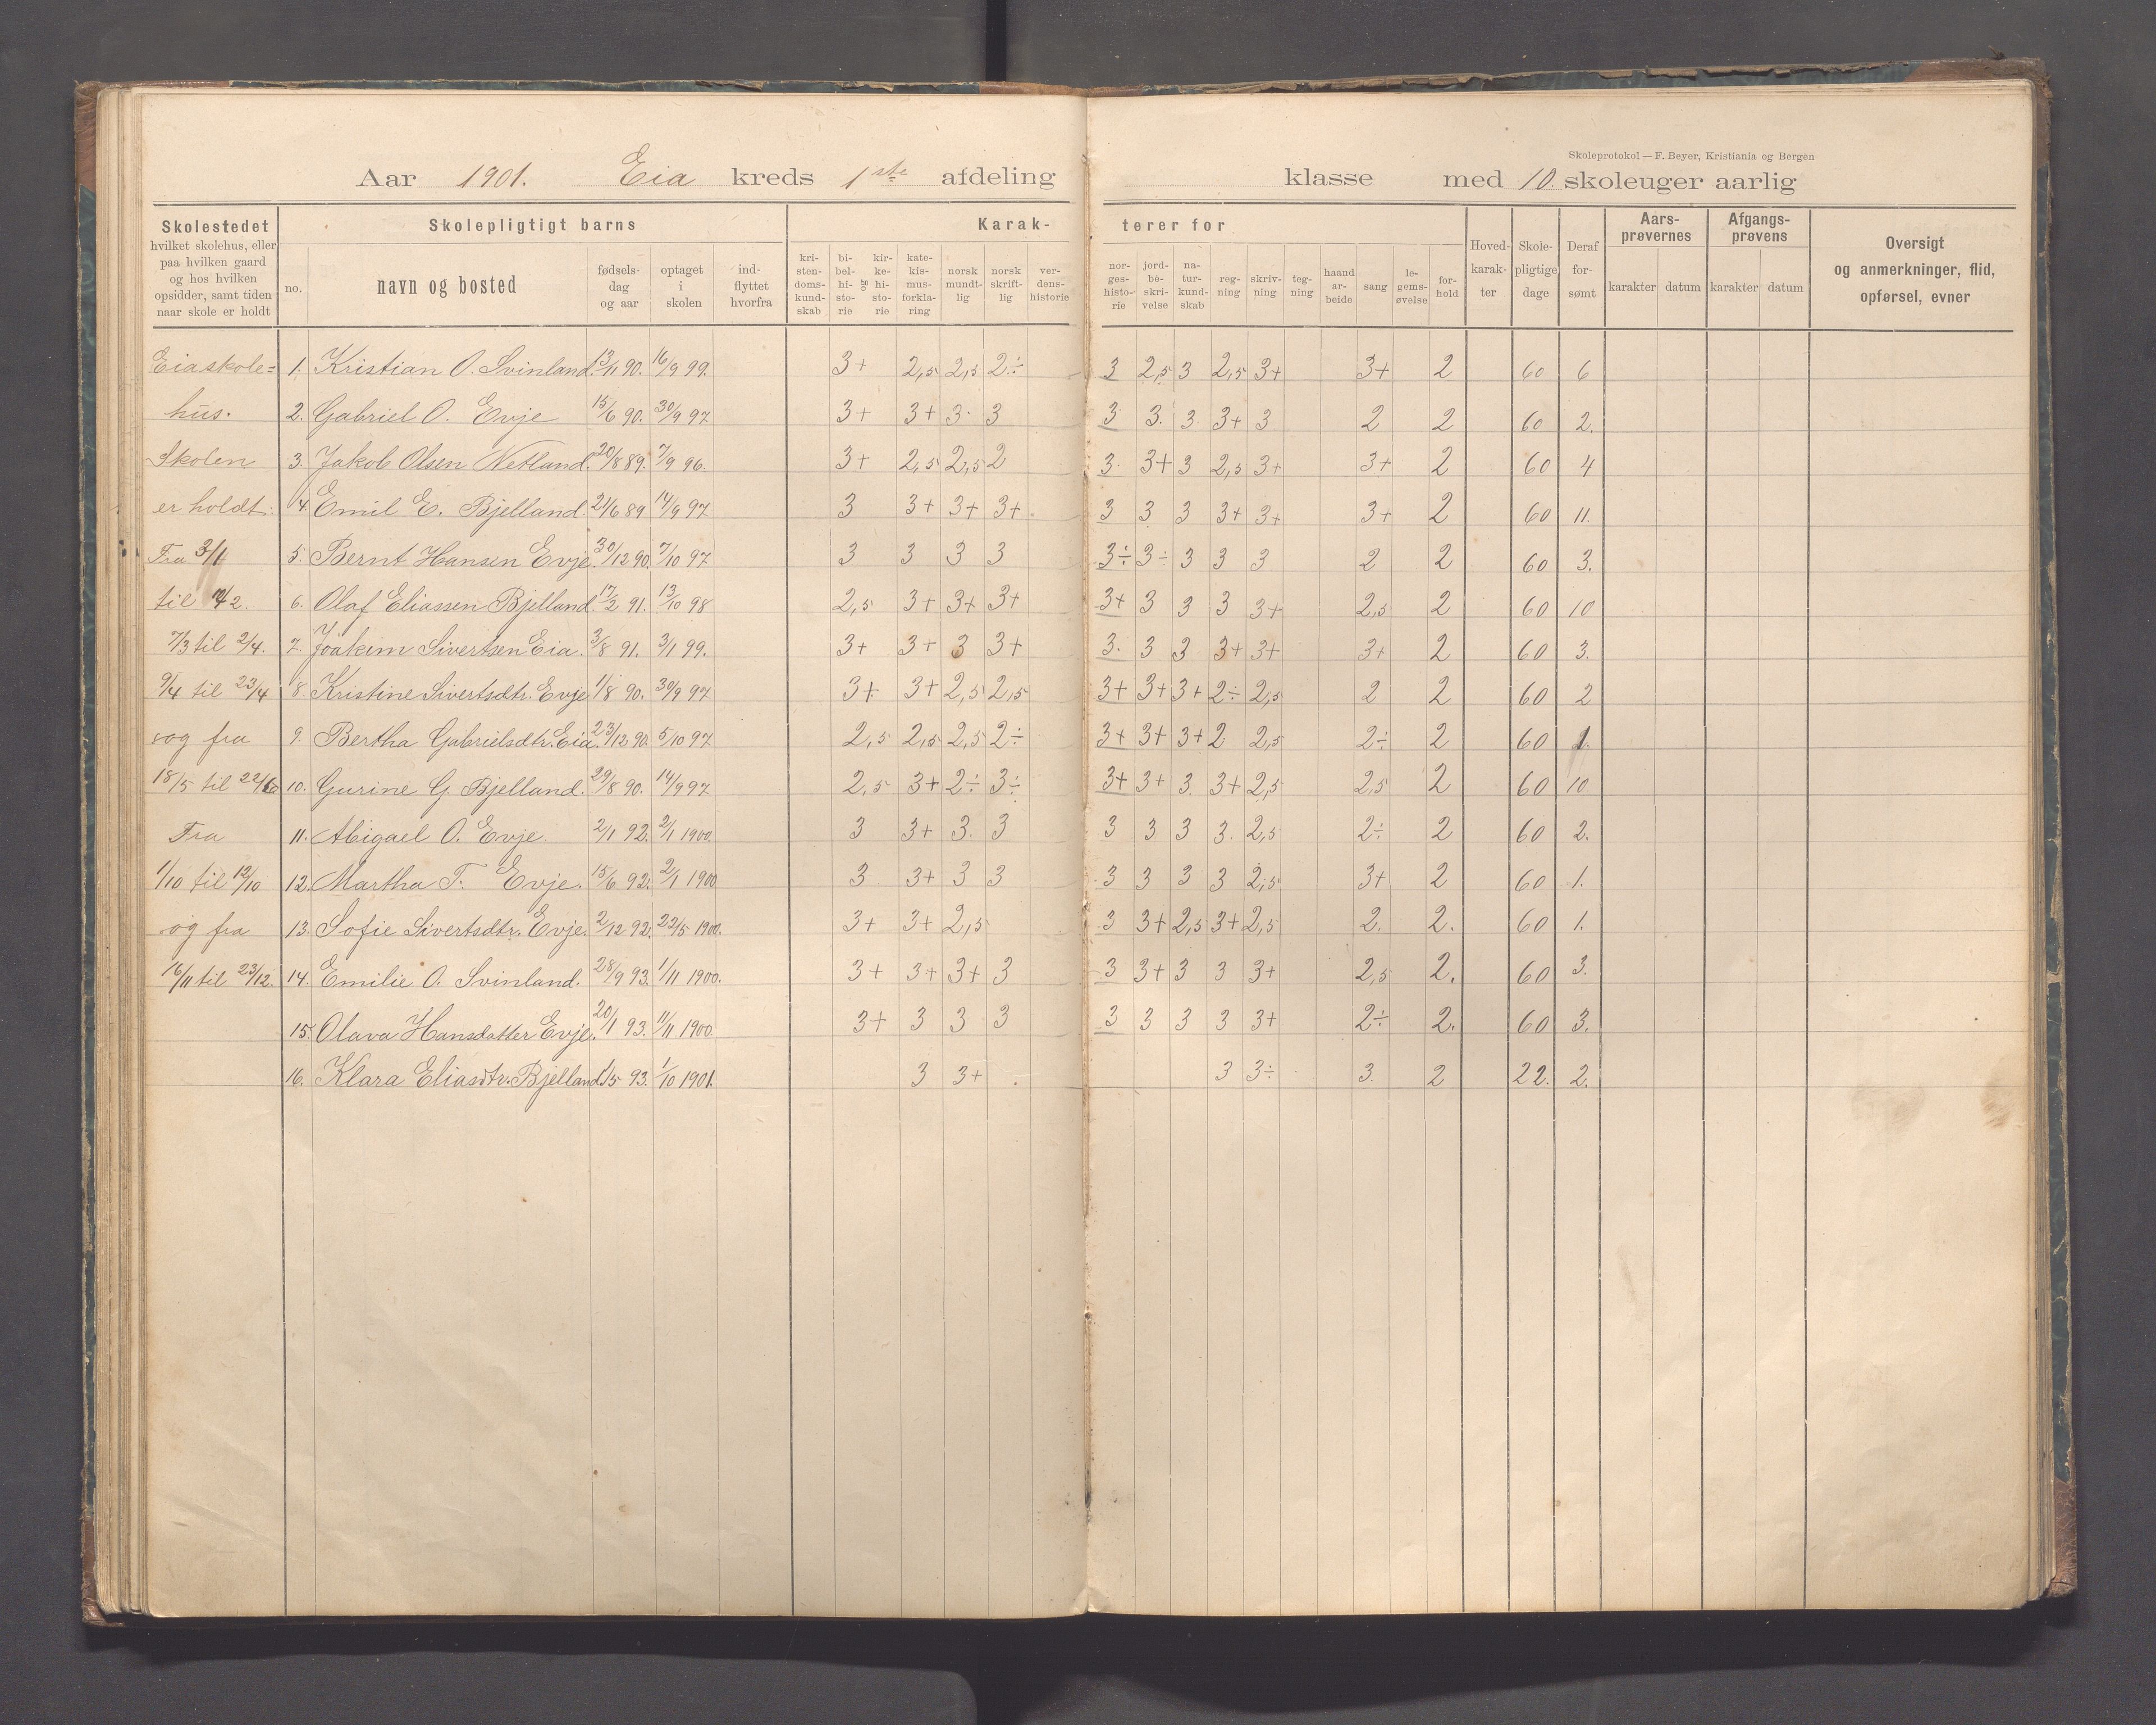 Skoleprotokol — F. Beyer, Kristiania og Bergen
Aar 1901. Eia kreds 1ste afdeling klasse med 10. skoleuger aarlig
Skolestedet
hvilket skolehus, eller
paa hvilken gaard
og hos hvilken
opsidder, samt tiden
naar skole er holdt
Skolepligtigt barns
no.
navn og bosted
fødsels-
dag
og aar
optaget
i
skolen
ind-
flyttet
hvorfra
Karak-
terer for
kri-
sten-
doms-
kund-
skab
bi-
bel-
hi-
sto-
rie
og
kir-
ke-
hi-
sto-
rie
kate-
kis-
mus-
forkla-
ring
norsk
mundt-
lig
norsk
skrift-
lig
ver-
dens-
historie
nor-
ges-
histo-
rie
jord-
be-
skri-
velse
na-
tur-
kund-
skab
reg-
ning
skriv-
ning
teg-
ning
haand
ar-
beide
sang
le-
gems-
øvelse
for-
hold
Hoved-
karak-
ter
Skole-
pligtige
dage
Deraf
for-
sømt
Aars-
prøvernes
karakter datum
Afgangs-
prøvens
karakter datum
Oversigt
og anmerkninger, flid,
opførsel, evner
Eiaskole= 1. Kristian O. Svinland. 13/11 90. 16/9 99. 3+ 2,5 2,5 2÷ 3 2,5 3 2,5 3+ 3+ 2 60 6
hus. 2. Gabriel O. Evje 15/6 90. 30/9 97 3+ 3+ 3. 3 3 3. 3 3+ 3 2 2 60 2.
Skolen 3. Jakob Olsen Netland. 20/8 89. 7/9 96. 3+ 2,5 2,5 2 3. 3+ 3 2,5 3+ 3+ 2 60 4
er holdt: 4. Emil E. Bjelland 21/6 89 14/9 97 3 3+ 3+ 3+. 3 3 3 3+ 3+ 3+ 2 60 11.
Fra 3/1 5. Bernt Hansen Evje. 30/12 90. 7/10 97 3 3 3 3 3÷ 3÷ 3 3 3 2 2 60 3.
til /2. 6. Olaf Eliassen Bjelland. 17/2 91. 13/10 98 2,5 3+ 3+ 3+ 3+ 3 3 3 3+ 2,5 2 60 10
7/3 til 2/4. 7. Joakim Sivertsen Eia. 3/8 91. 3/1 99. 3+ 3+ 3 3+ 3. 3 3 3+ 3+ 3+ 2 60 3.
9/4 til 23/4 8. Kristine Sivertsdtr. Evje 1/8 90. 30/9 97 3+ 3+ 2,5 2,5 3+ 3+ 3+ 2÷ 2,5 2 2 60 2
og fra 9. Bertha Gabrielsdtr. Eia. 23/12 90. 5/10 97 2,5 2,5 2,5 2÷ 3+ 3+ 3+ 2 2,5 2÷ 2 60 1.
18/5 til 22/6 10. Gurine G. Bjelland. 29/8 90. 14/9 97 2,5 3+ 2÷ 3÷ 3+ 3+ 3. 3+ 2,5 2,5 2 60 10
Fra 11. Abigael O. Evje 2/1 92. 2/1 1900. 3 3+ 3. 3 3 3 3 3. 2,5 2÷ 2 60 2.
1/10 til 12/10 12. Martha T. Evje. 15/6 92. 2/1 1900 3 3+ 3 3 3 3 3 3 2,5 3+ 2 60 1.
og fra 13. Sofie Sivertsdtr. Evje. 2/12 92. 22/5 1900. 3+ 3+ 2,5 3 3+ 2,5 3+ 2,5 2. 2. 60 1.
16/11 til 23/12. 14. Emilie O. Svinland. 28/9 93. 1/11 1900. 3+ 3+ 3+ 3 3 3+ 3 3 3+ 2,5 2. 60 3.
15. Olava Hansdatter Evje. 20/1 93. 11/11 1900. 3+ 3 3 3 3 3 3 3 3+ 2÷ 2. 60 3.
16. Klara Eliasdtr. Bjelland 1/5 93. 1/10 1901. 3 3+ . 3 3÷ 3. 2 22. 2.